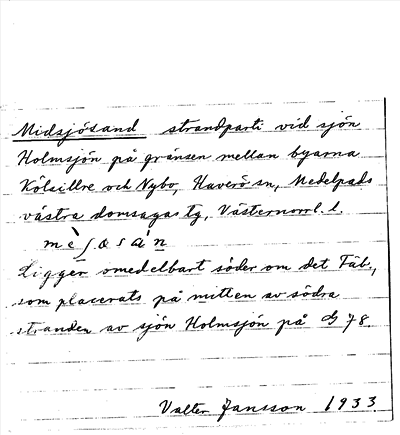 Midsjösand strandparti vid sjön
Holmsjön på gränsen mellan byarna
Kölsillre och Nybo, Haverö sn, Medelpads
västra domsagas tg, Västernorrl. l.
Ligger omedelbart söder om det Fäb.,
som placerats på mitten av södra
stranden av sjön Holmsjön på G 78.
Valter Jansson 1933.